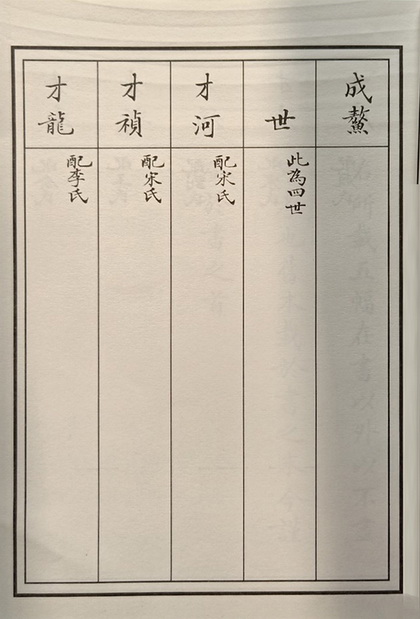 成鰲
世
此為四世
才河
配宋氏
才禎
配宋氏
才龍
配李氏